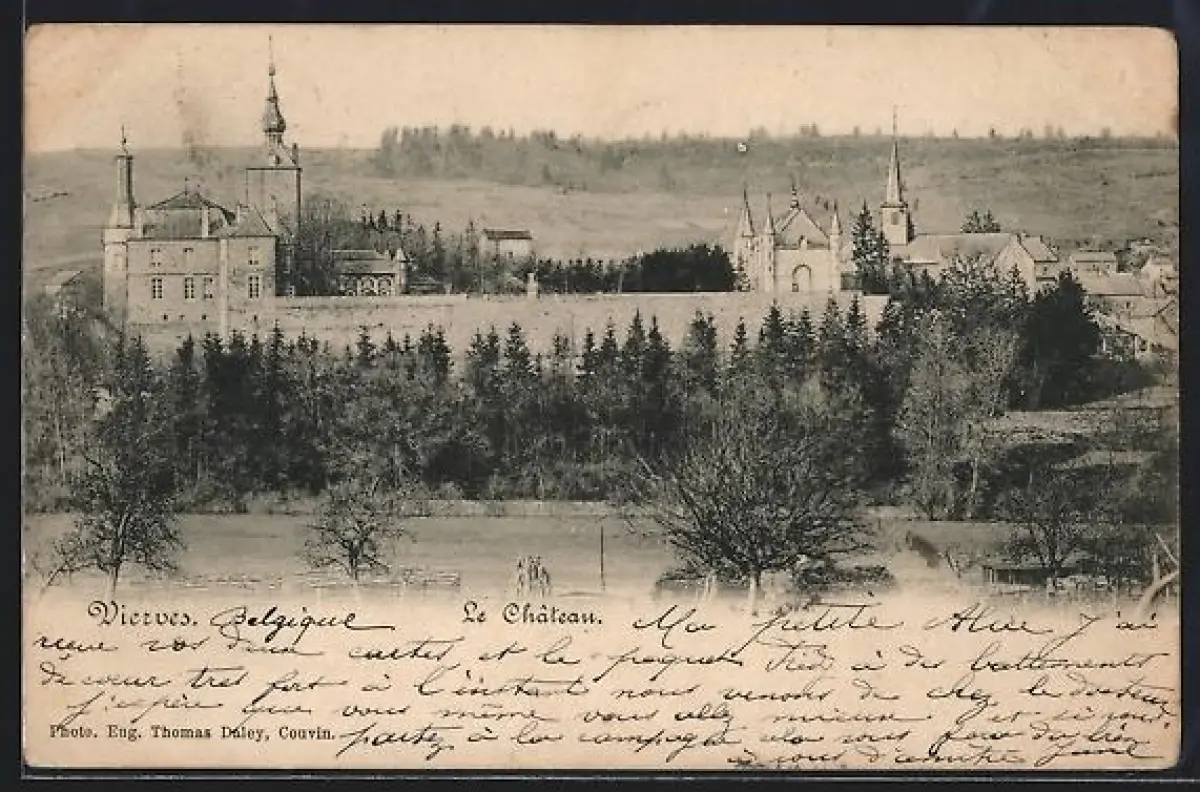 Vierves. Belgique Le Château. Ma petite Alice j'ai
reçue vos deux cartes et le paquet à des battements
de cœur très fort à l'instant nous venons de chez le docteur
j'espère que vous même vous allez mieux et si vous
Photo. Eug. Thomas Daley, Couvin. partez à la campagne cela vous fera du bien
à vous d'amitié